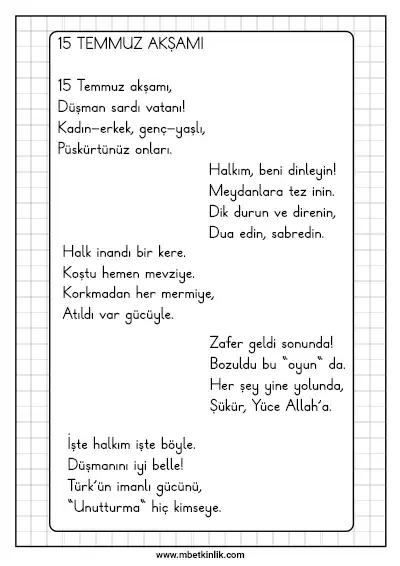 15 TEMMUZ AKŞAMI
15 Temmuz akşamı,
Düşman sardı vatanı!
Kadın-erkek, genç-yaşlı,
Püskürtünüz onları.
Halkım, beni dinleyin!
Meydanlara tez inin.
Dik durun ve direnin,
Dua edin, sabredin.
Halk inandı bir kere.
Koştu hemen mevziye.
Korkmadan her mermiye,
Atıldı var gücüyle.
Zafer geldi sonunda!
Bozuldu bu “oyun“ da.
Her şey yine yolunda,
Şükür, Yüce Allah’a.
İşte halkım işte böyle.
Düşmanını iyi belle!
Türk’ün imanlı gücünü,
“Unutturma“ hiç kimseye.
www.mbetkinlik.com